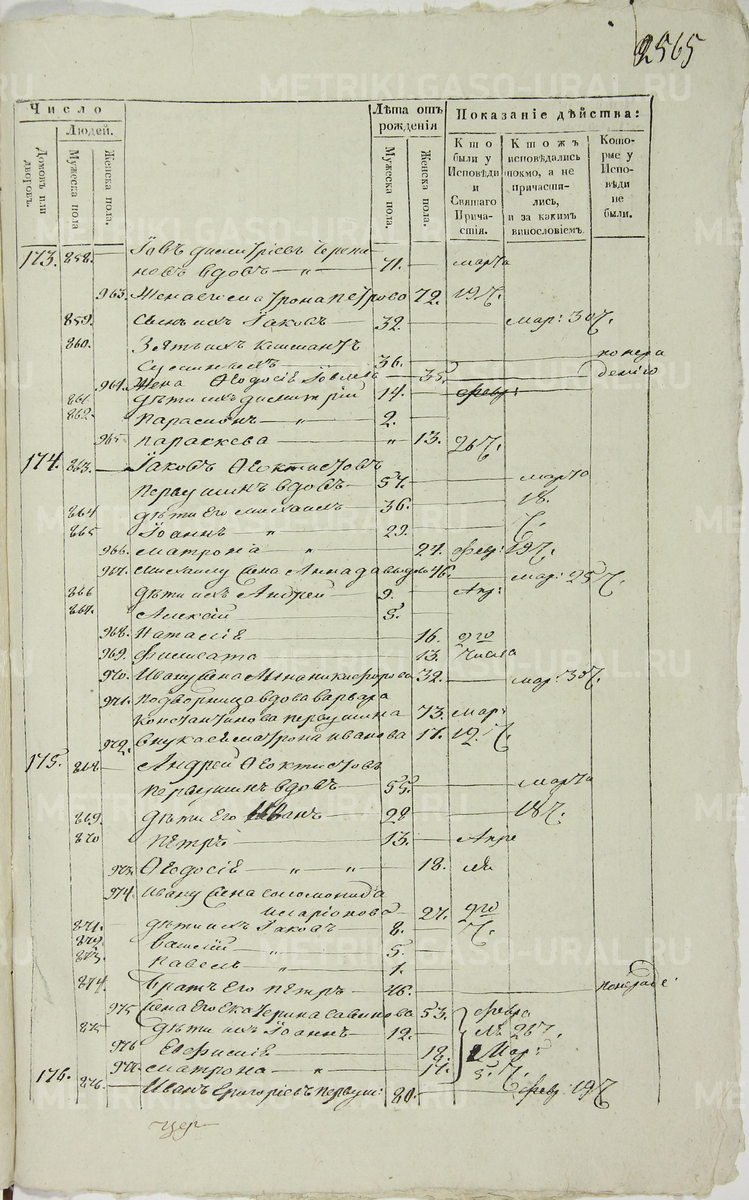 2565
Число
Людей.
Домовъ или дворовъ.
Мужеска пола
Женска пола.
Лѣта отъ рожденія
Мужеска пола.
Женска пола.
Показаніе дѣйства:
Кто были у Исповѣди и Святаго Причастія.
Ктожъ исповѣдались токмо, а не причастились, и за какимъ винословіемъ.
Которые у Исповѣди не были.
173. 858. Іовъ Димитріевъ
новъ вдовъ — „ — 71. — марта
963. Жена его Матрона Петрова 72. 19 Ч.
859. Сынъ ихъ Іаковъ — 32. мар: 30 Ч.
860. Зять ихъ
36.
964. Жена Ѳеодосія 35.
861. Дѣти ихъ Димитрій 14. февр:
862. Парамонъ — „ — 2.
965. Параскева — „ 13. 26 Ч.
174. 863. Іаковъ Ѳеоктистовъ
Первушинъ вдовъ — 57. марта
864 Дѣти его Михаилъ 36. 18.
865 Іоаннъ — „ 29. Ч.
966. Матрона „ 24. февр: 19 Ч.
967. Михаилу жена Анна Давыдо 46. мар: 25 Ч.
866 Дѣти ихъ Андрей — 9. Апр:
867. Алексій — 5.
968. Наталія 16. 9го
969. Филисата 13. Числа
970. Ивану жена Анна Никифорова 32. мар: 30 Ч.
971. Подворница вдова Варвара
Константинова Первушина 73. мар:
972. Внука ея Матрона Иванова 17. 19 Ч.
175. 868. Андрей Ѳеоктистовъ
Первушинъ вдовъ — 55. марта
869. Дѣти его Иванъ — 29 18 Ч.
870 Петръ 13. Апре
973. Ѳеодосія — „ — „ — 18. ля
974. Ивану жена Соломонида
Иларіонова 27. 9го
871. Дѣти ихъ Іаковъ 8. Ч.
872. Василій — „ — 5.
873. Павелъ — „ 1.
874. Братъ его Петръ — 46.
975 Жена его Екатерина Саввинова 53. февра
875 Дѣти ихъ Іоаннъ — 12. ля 26 Ч.
976 Евфимія 19. Мар:
977. Матрона — „ 17. 5. Ч.
176. 876. Иванъ Григоріевъ Первуш: 80. февр: 19 Ч
METRIKI.GASO-URAL.RU